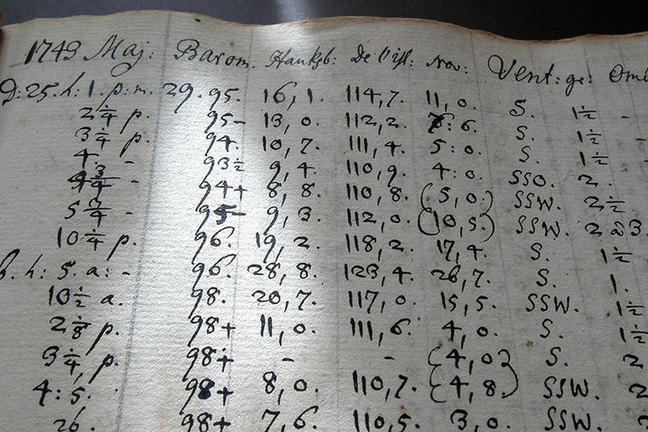 1743 Maj: Barom. Hauksb: De l'Isl: Nov: Vent: ge: Omb
D: 25. h: 1. p. m. 29. 95. 16, 1. 114, 7. 11, 0. S. 1½ -
2¼ p. 95- 13, 0. 112, 2. 6: 6. S. 1½ -
3¼ p. 94. 10, 7. 111, 4. 5: 0. S. 1½ -
4 - 93½ 9, 4. 110, 9. 4: 0. SSO. 2.
94+ 8, 8. 110, 8. (5, 0.) SSW. 2½
5¼ - 95- 9, 3. 112, 0. (10, 5.) SSW. 2 à 3.
10¼ p. 96. 19, 2. 118, 2. 17, 4. S. 1½
h: 5. a: - 96. 28, 8. 123, 4. 26, 7. S. 1.
10½ a. 98. 20, 7. 117, 0. 15, 5. SSW. 1½
2⅛ p. 98+ 11, 0. 111, 6. 4, 0. S. 1½
3¼, p. 98+ - - (4, 0) S. 2
4: 5. 98+ 8, 0. 110, 7. (4, 8.) SSW. 2
26. 98+ 7, 6. 110, 5. 3, 0. SSW.